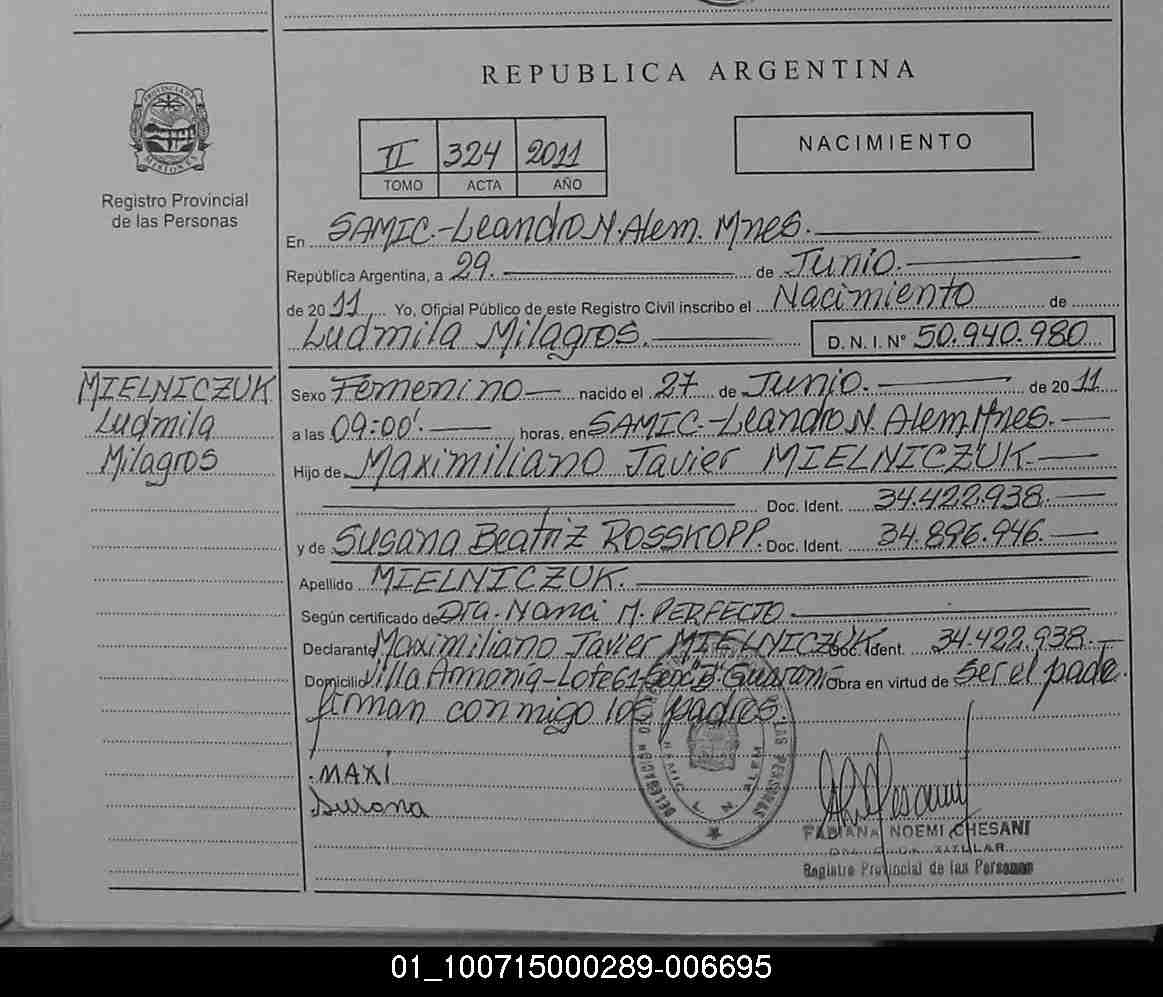 REPUBLICA ARGENTINA
PROVINCIA DE MISIONES
Registro Provincial
de las Personas
II 324 2011
TOMO ACTA AÑO
NACIMIENTO
En SAMIC.-Leandro N. Alem. Mnes.
República Argentina, a 29. de Junio.
de 2011 Yo, Oficial Público de este Registro Civil inscribo el Nacimiento de
Ludmila Milagros. D. N. I. N° 50.940.980
MIELNICZUK
Ludmila
Milagros
Sexo Femenino nacido el 27 de Junio. de 2011
a las 09:00'. horas, en SAMIC-Leandro N. Alem. Mnes.
Hijo de Maximiliano Javier MIELNICZUK.
Doc. Ident. 34.422.938.
y de Susana Beatriz ROSSKOPP. Doc. Ident. 34.896.946.
Apellido MIELNICZUK.
Según certificado de Dra. Nanci M. PERFECTO
Declarante Maximiliano Javier MIELNICZUK Doc. Ident. 34.422.938.
Domicilio Villa Armonía-Lote 61 Guaraní Obra en virtud de Ser el padre.
firman conmigo los padres.
MAXI
Susana
DELEGACION LAS PERSONAS
SAMIC L. N. ALEM
FABIANA NOEMI CHESANI
Registro Provincial de las Personas
01_100715000289-006695